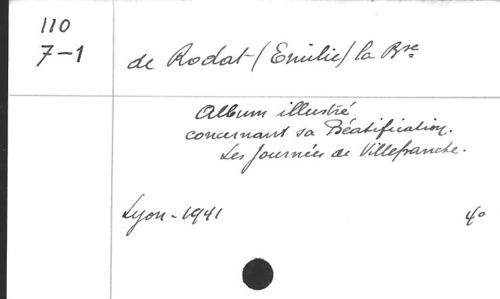 110
7-1
de Rodat (Emilie) la Bse
Album illustré
concernant sa Béatification.
Les Journées de Villefranche.
Lyon - 1941
4o